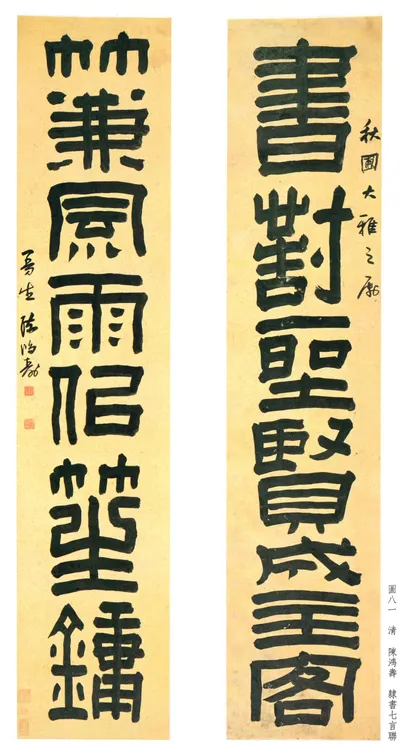 秋圃大雅之屬
書對聖賢成主客
竹兼風雨似笙鏞
曼生陳鴻壽
圖八一 清 陳鴻壽 隸書七言聯